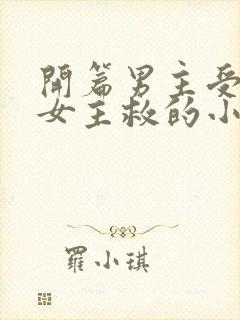 開篇男主受
女主救的小
羅小琪